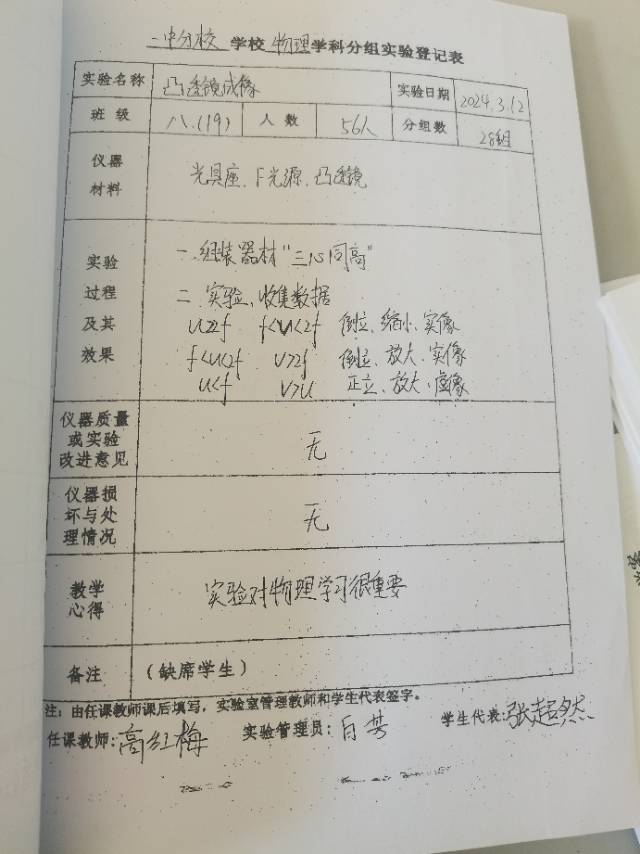 二中分校 学校 物理 学科分组实验登记表
实验名称 凸透镜成像 实验日期 2024.3.12
班级 八.(19) 人数 56人 分组数 28组
仪器材料 光具座、F光源、凸透镜
实验过程及其效果
一.组装器材"三心同高"
二.实验、收集数据
u>2f f<v<2f 倒立、缩小、实像
f<u<2f v>2f 倒立、放大、实像
u<f v>u 正立、放大、虚像
仪器质量或实验改进意见 无
仪器损坏与处理情况 无
教学心得 实验对物理学习很重要
备注 (缺席学生)
注:由任课教师课后填写,实验室管理教师和学生代表签字。
任课教师:高红梅 实验管理员:白芸 学生代表:张超然